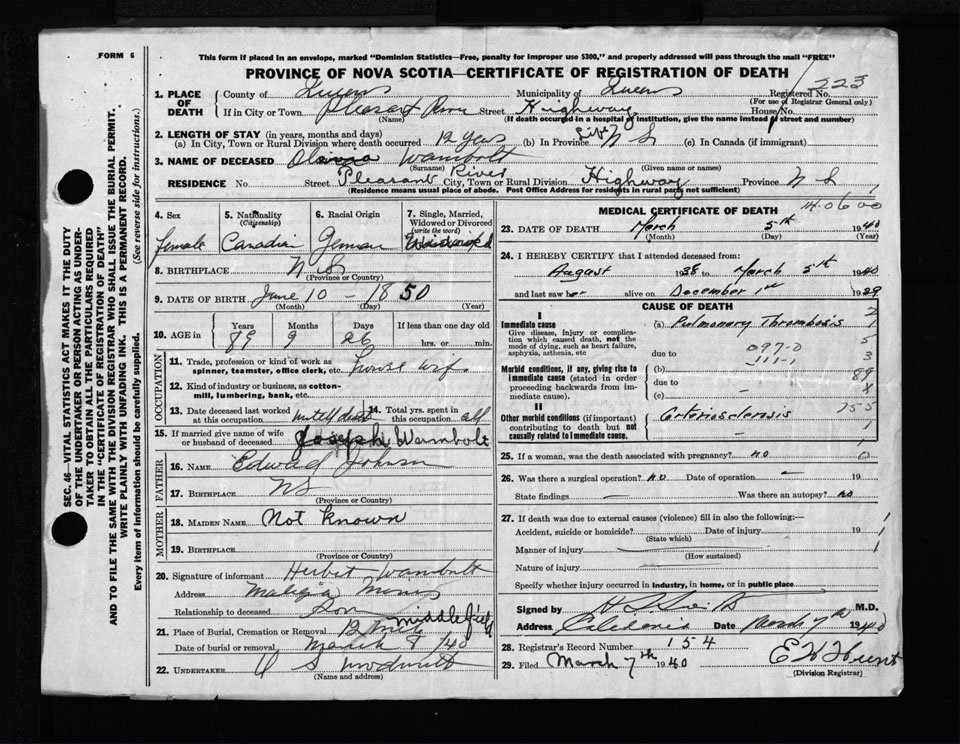 FORM 6
This form if placed in an envelope, marked "Dominion Statistics—Free, penalty for improper use $300," and properly addressed will pass through the mail "FREE"
PROVINCE OF NOVA SCOTIA—CERTIFICATE OF REGISTRATION OF DEATH
223
1. PLACE OF DEATH
County of Queens Municipality of Queens Registered No.
(For use of Registrar General only)
If in City or Town Pleasant River Street Highway House No.
(Name) (If death occurred in a hospital or institution, give the name instead of street and number)
2. LENGTH OF STAY (in years, months and days)
(a) In City, Town or Rural Division where death occurred 12 years (b) In Province Life N S (c) In Canada (if immigrant)
3. NAME OF DECEASED Wambolt
(Surname) (Given name or names)
RESIDENCE No. Street Pleasant River City, Town or Rural Division Highway Province N S
(Residence means usual place of abode. Post Office Address for residents in rural parts not sufficient)
4. Sex 5. Nationality (Citizenship) 6. Racial Origin 7. Single, Married, Widowed or Divorced (write the word)
female Canadian German
8. BIRTHPLACE N S
(Province or Country)
9. DATE OF BIRTH June 10 - 1850
(Month) (Day) (Year)
10. AGE in Years Months Days If less than one day old
89 9 26 hrs. or min.
OCCUPATION
11. Trade, profession or kind of work as spinner, teamster, office clerk, etc. house wif.
12. Kind of industry or business, as cotton-mill, lumbering, bank, etc.
13. Date deceased last worked at this occupation 14. Total yrs. spent in this occupation all
15. If married give name of wife or husband of deceased Joseph Wambolt
FATHER
16. NAME Edward Johnson
17. BIRTHPLACE NS
(Province or Country)
MOTHER
18. MAIDEN NAME Not Known
19. BIRTHPLACE
(Province or Country)
20. Signature of informant Herbet Wambolt
Address Malega Mines
Relationship to deceased Son
21. Place of Burial, Cremation or Removal Middlefield
Date of burial or removal March 8 /40
22. UNDERTAKER
(Name and address)
MEDICAL CERTIFICATE OF DEATH
14-06 00
23. DATE OF DEATH March 5th 1940
(Month) (Day) (Year)
24. I HEREBY CERTIFY that I attended deceased from:
August 1938 to March 5th 1940
and last saw her alive on December 1st 1939
CAUSE OF DEATH
I
Immediate cause
Give disease, injury or complication which caused death, not the mode of dying, such as heart failure, asphyxia, asthenia, etc
(a) Pulmonary Thrombosis
due to
097-0
111-1
Morbid conditions, if any, giving rise to immediate cause (stated in order proceeding backwards from immediate cause).
(b)
due to
(c)
89
II
Other morbid conditions (if important) contributing to death but not causally related to immediate cause.
Arteriosclerosis
25. If a woman, was the death associated with pregnancy? no
26. Was there a surgical operation? no Date of operation —
State findings — Was there an autopsy? no
27. If death was due to external causes (violence) fill in also the following:—
Accident, suicide or homicide? Date of injury 19
(State which)
Manner of injury
(How sustained)
Nature of injury
Specify whether injury occurred in industry, in home, or in public place
Signed by M.D.
Address Caledonia Date March 7th 1940
28. Registrar's Record Number 154
29. Filed March 7th 1940 E K Hunt
(Division Registrar)
SEC. 46—VITAL STATISTICS ACT MAKES IT THE DUTY
OF THE UNDERTAKER OR PERSON ACTING AS UNDER-
TAKER TO OBTAIN ALL THE PARTICULARS REQUIRED
IN THE "CERTIFICATE OF REGISTRATION OF DEATH"
AND TO FILE THE SAME WITH THE DIVISION REGISTRAR WHO SHALL ISSUE THE BURIAL PERMIT.
WRITE PLAINLY WITH UNFADING INK. THIS IS A PERMANENT RECORD.
Every item of information should be carefully supplied. (See reverse side for instructions.)